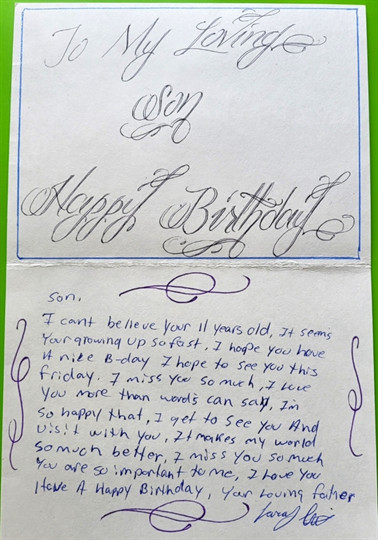 To My Loving
Son
Happy Birthday
Son.
I cant believe your 11 years old, It seems
Your growing up so fast, I hope you have
A nice B-day I hope to see you this
friday. I miss you so much, I Love
you more than words can say, I'm
so happy that, I get to see you And
visit with you, It makes my world
so much better, I miss you so much
You are so important to me, I Love You
Have A Happy Birthday, Your Loving father